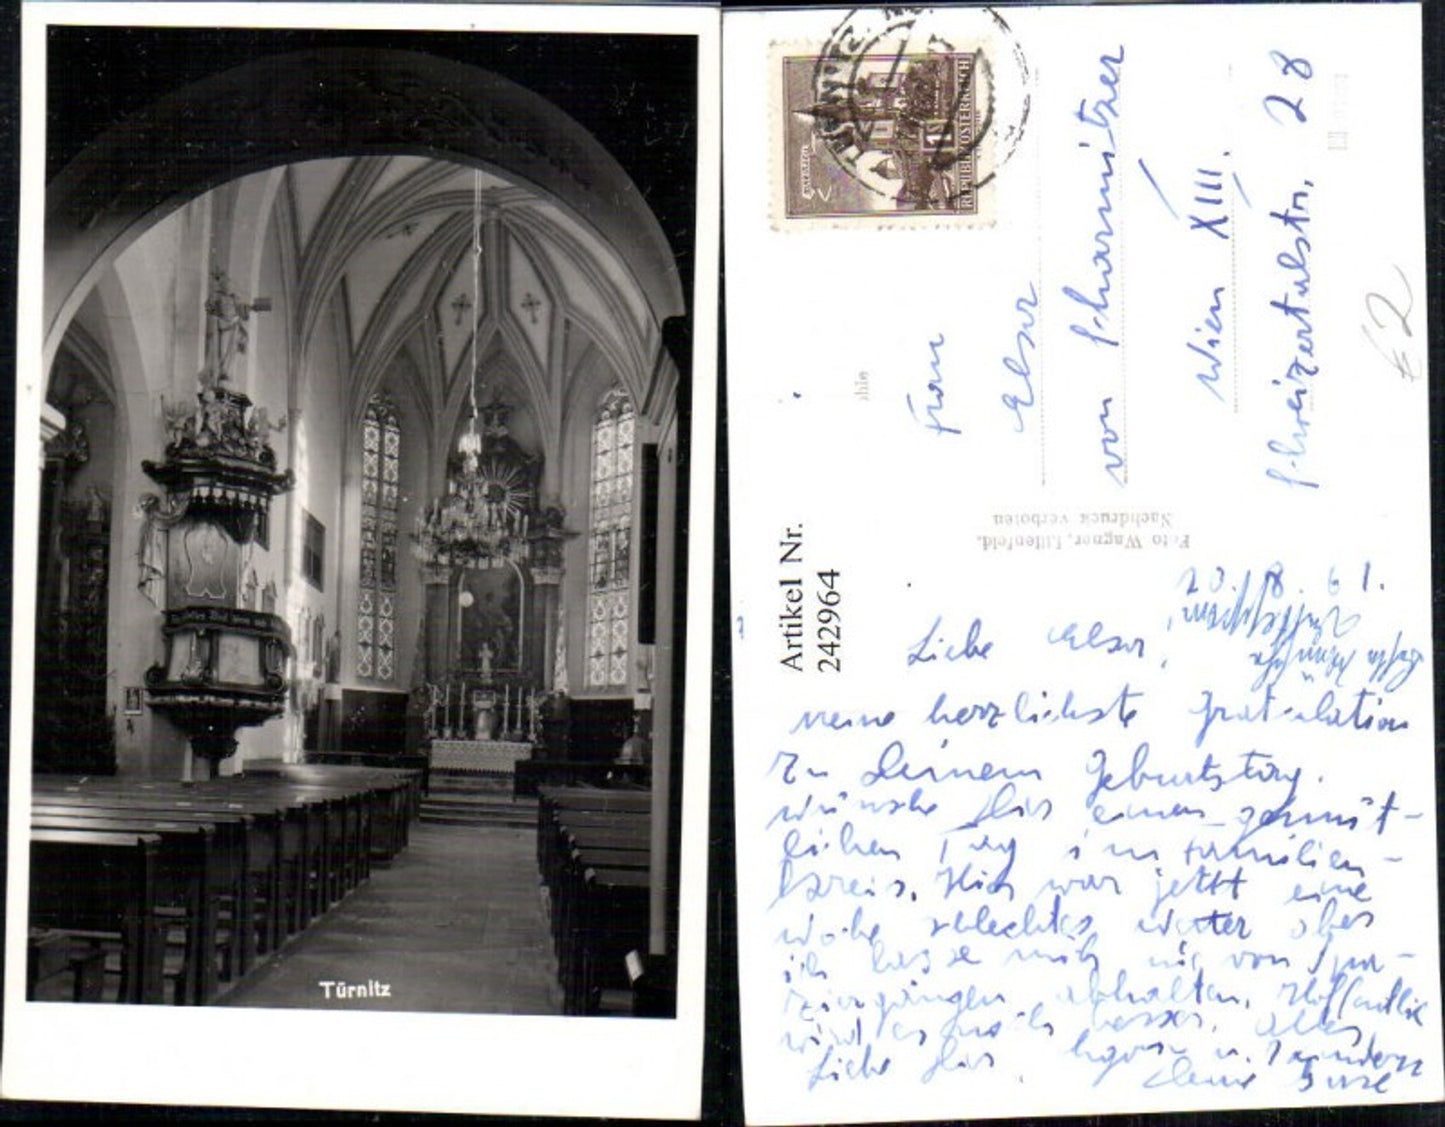 Türnitz
TÜRNITZ
REPUBLIK ÖSTERREICH
1S
Artikel Nr.
242964
Foto Wagner, Lilienfeld.
Nachdruck verboten
Frau
Elsa
von Scharnitzer
Wien XIII.
Schweizertalstr. 28
€2
20./8. 61.
Liebe Elsa,
meine herzlichste Gratulation
zu Deinem Geburtstag.
wünsche Dir einen gemüt-
lichen Tag im Familien-
kreis. Hier war jetzt eine
Woche schlechtes Wetter aber
ich lasse mich nie von Spa-
ziergängen abhalten. Hoffentlich
wird es noch besser. Alles
Liebe Dir
Deine